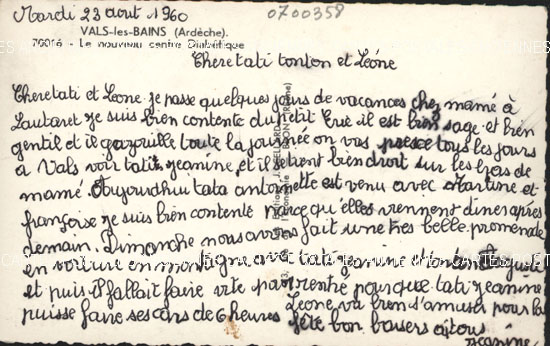 Mardi 23 aout 1960
0700358
VALS-les-BAINS (Ardèche).
70016 - Le nouveau centre Diabétique
Cheretati tonton et Léone
Cheretati et Leone je passe quelques jours de vacances chez mamé à
Lautaret je suis bien contente du petit Eric il est bien sage et bien
gentil et il gazouille toute la journée on vas presce tous les jours
à Vals voir tati jeamine et il se tient bien droit sur les bras de
mamé. Aujourd'hui tata antoinette est venu avec Martine et
françoise je suis bien contente parce qu'elles viennent diner après
demain. Dimanche nous avons fait une très belle promenade
en voiture en montagne avec tati jeanine
et puis il fallait faire vite pour rentré pour que tati jeanine
puisse faire ses cars de 6 heures Leone va bien s'amuser pour la
fête bon baisers à tous
jeanine.